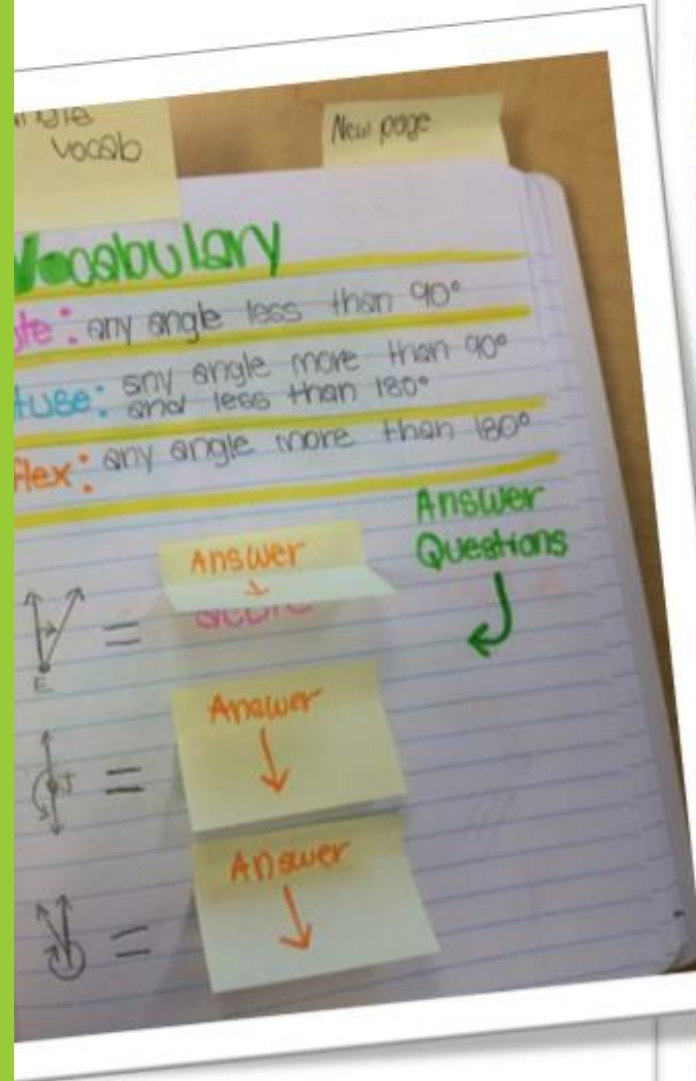 vocab
New page
Vocabulary
any angle less than 90°
any angle more than 90°
and less than 180°
flex: any angle more than 180°
Answer
Questions
Answer
acute
E
=
Answer
J
=
Answer
=